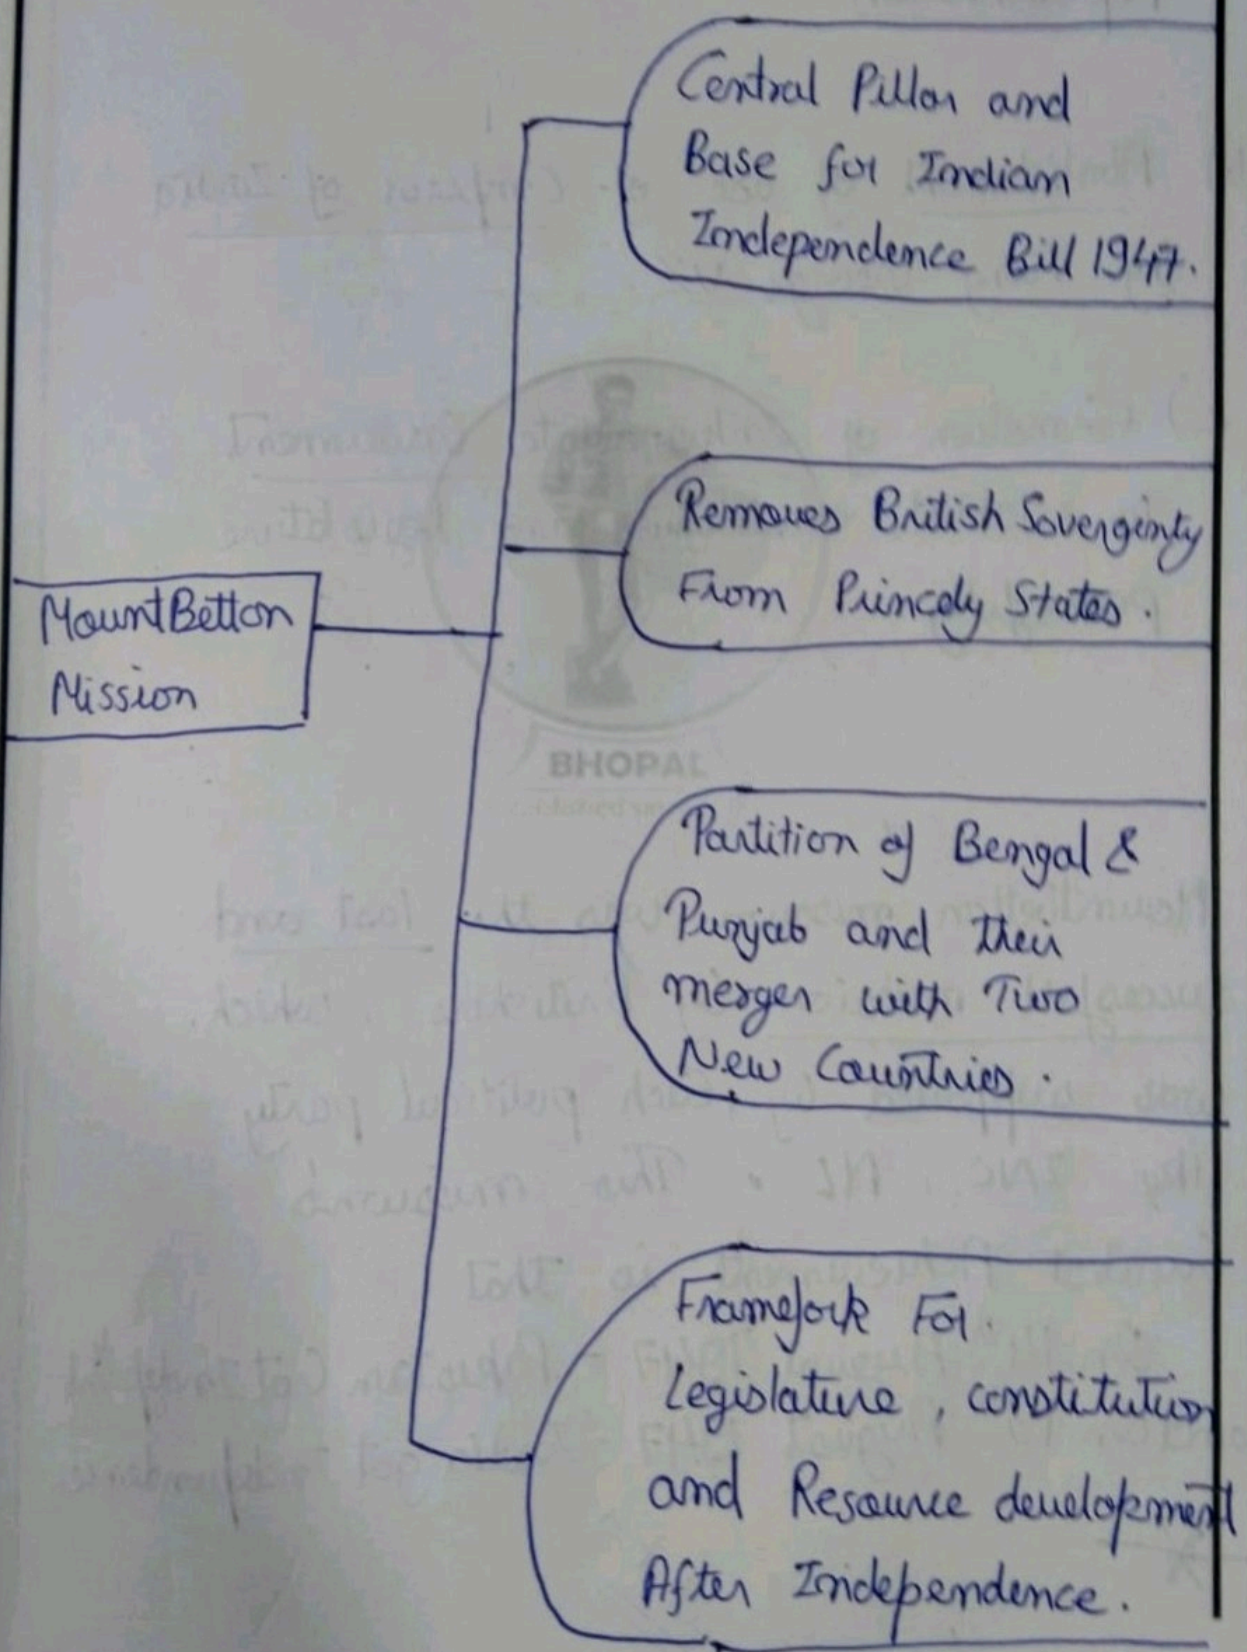 Central Pillar and
Base for Indian
Independence Bill 1947.
Removes British Soverginty
From Princely States.
MountBetton
Mission
BHOPAL
Partition of Bengal &
Punjab and their
merger with Two
New Countries.
Framefork For
Legislature, constitution
and Resource development
After Independence.